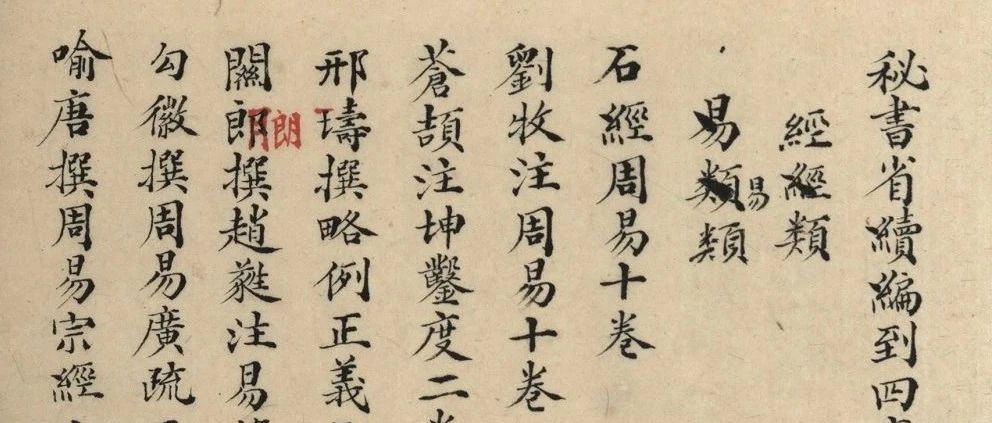 秘書省續編到四
經經類
易類易類
石經周易十卷
劉牧注周易十卷
蒼頡注坤鑿度二
邢璹撰略例正義
關郎朗撰趙蕤注易
勾徽撰周易廣疏
喻唐撰周易宗經